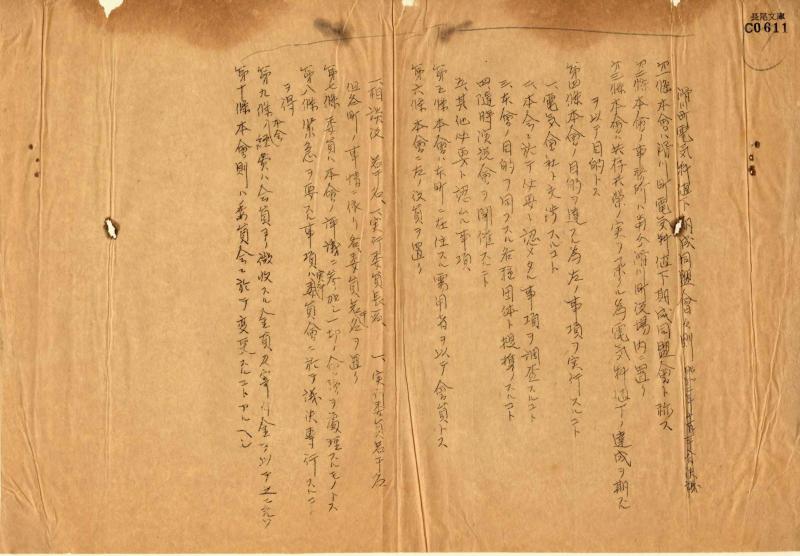 長尾文庫
C0611
滑川町電気料値下期成同盟會々則
第一條本會ハ滑川町電気料値下期成同盟會ト称ス
第二條本會ノ事務所ハ当分滑川町役場内ニ置ク
第三條本會ハ共存共榮ノ実ヲ挙ル為電気料値下ノ達成ヲ期スル
ヲ以テ目的トス
第四條本會ノ目的ヲ達スル為左ノ事項ヲ実行スルコト
一、電気會社ト交渉スルコト
二、本會ニ於テ必要ト認メタル事項ヲ調査スルコト
三、本會ノ目的ヲ同フスル各種団体ト提携スルコト
四、随時演説會ヲ開催スルコト
五、其他必要ト認ムル事項
第五條本會ハ本町ニ在住スル需用者ヲ以テ會員トス
第六條本會ニ左ノ役員ヲ置ク
一、相談役 若干名、一、実行委員長 一、実行委員若干名
但各町ノ事情ニ依リ委員若干名ヲ置ク
第七條委員ハ本會ノ評議ニ参加シ一切ノ會務ヲ處理スルモノトス
第八條緊急ヲ要スル事項ハ実行委員會ニ於テ議決専行スルコト
ヲ得
第九條本会ノ経費ハ会員ヨリ徴収スル金員及寄付金ヲ以テ之ニ充ツ
第十條本會則ハ委員会ニ於テ変更スルコトアルヘシ